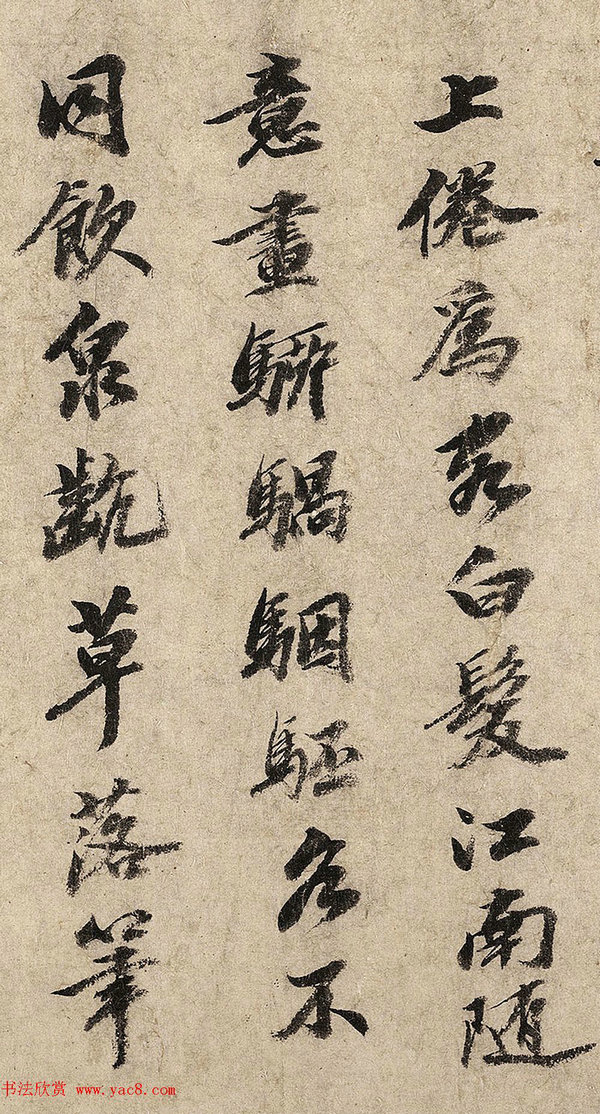 上倦為客白髮江南随
意畫騧駰駓各不
同飲泉齕草落筆
书法欣赏 www.yac8.com